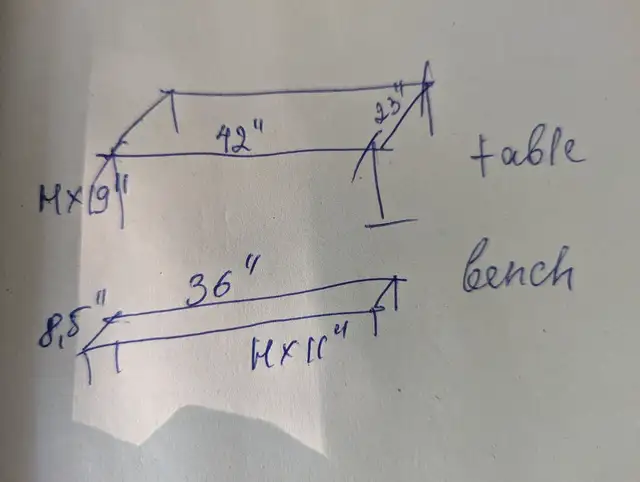 23"
42"
table
H×19"
bench
36"
8,5"
H×11"